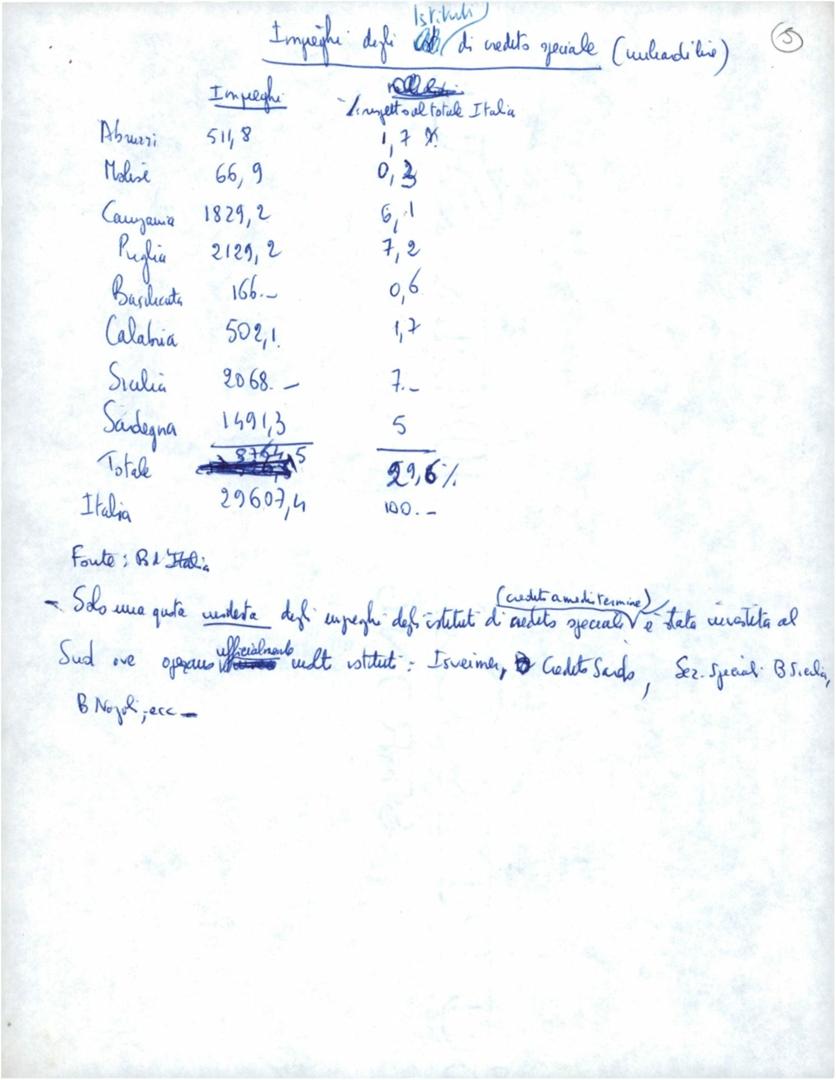 Istituti
Impieghi degli di credito speciale (miliardi lire) 5
Impieghi
% rispetto al totale Italia
Abruzzi 511,8 1,7
Molise 66,9 0,3
Campania 1829,2 6,1
Puglia 2129,2 7,2
Basilicata 166.- 0,6
Calabria 502,1 1,7
Sicilia 2068.- 7.-
Sardegna 1491,3 5
Totale 8764,5 29,6%
Italia 29607,4 100.-
Fonte: B d'Italia
(credito a medio termine)
- Solo una quota modesta degli impieghi degli istituti di credito speciale è stata investita al
ufficialmente
Sud ove operano molti istituti: Isveimer, Credito Sardo, Sez. Speciali B Sicilia,
B Napoli, ecc -